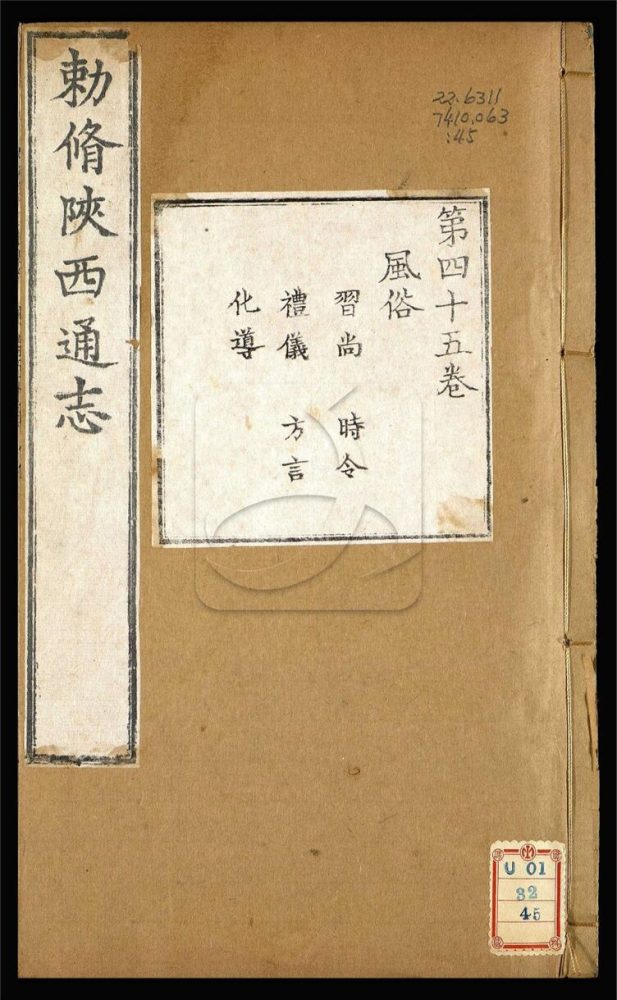 勅脩陝西通志
第四十五卷
風俗
習尚 時令
禮儀 方言
化導
22.6311
7410.063
:45
U 01
32
45